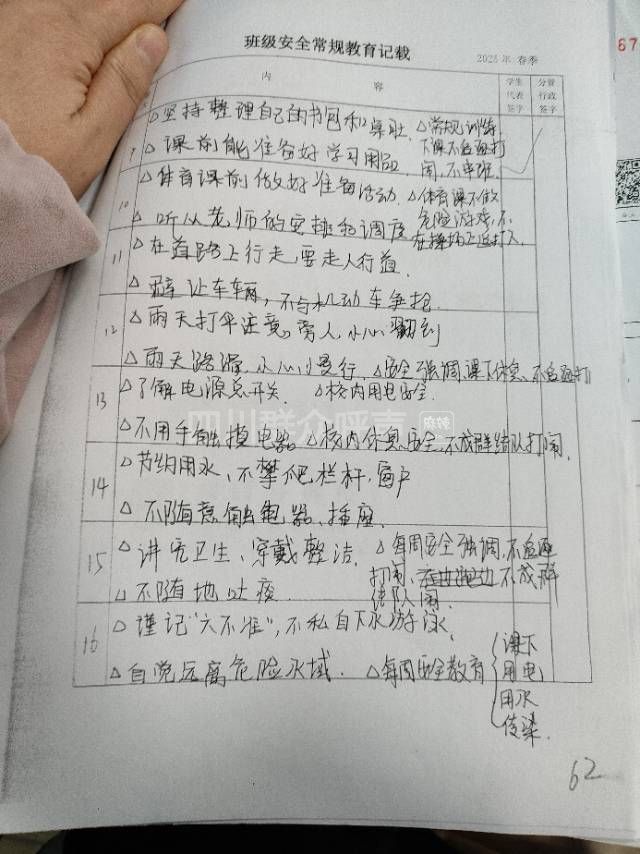 班级安全常规教育记载
2025年 春季
内 容
学生代表签字
分管行政签字
67
9
△坚持整理自己的书包和桌肚 △常规训练,
下课不追逐打
△课前能准备好学习用品 闹,不串班.
10
△体育课前做好准备活动. △体育课不做
危险游戏,不
△听从老师的安排和调度 在操场上追打人.
11
△在道路上行走,要走人行道.
△避让车辆,不与机动车争抢.
12
△雨天打伞注意旁人,小心戳到
△雨天路滑,小心慢行. △安全强调,课下休息,不追逐打
13
△了解电源总开关. △校内用电安全.
△不用手触摸电器 △校内休息安全,不成群结队打闹.
14
△节约用水、不攀爬栏杆,窗户
△不随意触电器、插座.
15
△讲究卫生、穿戴整洁. △每周安全强调,不追逐
打闹,不成群
△不随地吐痰. 结队闹.
16
△谨记“六不准”,不私自下水游泳.
△自觉远离危险水域. △每周安全教育
课下
用电
用水
传染.
62
四川群众呼声
麻辣